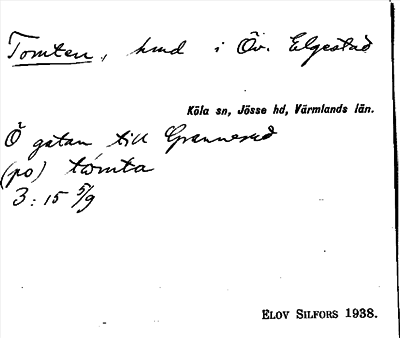 Tomten, hmd i Öv. Elgestad
Köla sn, Jösse hd, Värmlands län.
Ö gatan till Grannerud
(po) tòmta
3:15 5/9
ELOV SILFORS 1938.